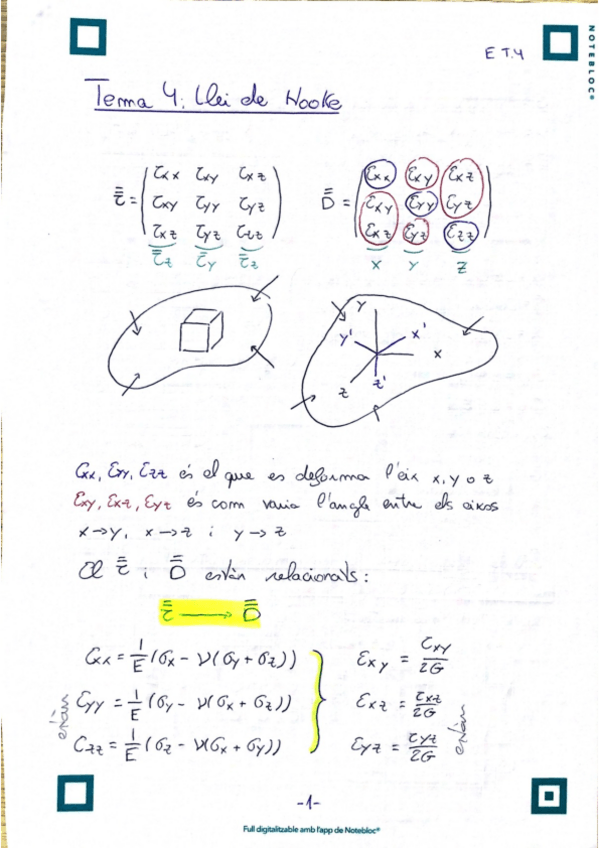 NOTEBLOC®
E T.4
Tema 4: Llei de Hooke
τ̿ = ( τxx τxy τxz
τxy τyy τyz
τxz τyz τzz )
τ̿z τ̿y τ̿z
D̿ = ( Ɛxx Ɛxy Ɛxz
Ɛxy Ɛyy Ɛyz
Ɛxz Ɛyz Ɛzz )
x y z
y
y' x'
x
z z'
Ɛxx, Ɛyy, Ɛzz és el que es deforma l'eix x, y o z
Ɛxy, Ɛxz, Ɛyz és com varia l'angle entre els eixos
x→y, x→z i y→z
El τ̿ i D̿ están relacionats:
τ̿ → D̿
Ɛxx = 1/E (σx - ν(σy + σz))
Ɛyy = 1/E (σy - ν(σx + σz))
Ɛzz = 1/E (σz - ν(σx + σy))
Ɛxy = τxy/2G
Ɛxz = τxz/2G
Ɛyz = τyz/2G
-1-
Full digitalitzable amb l'app de Notebloc®